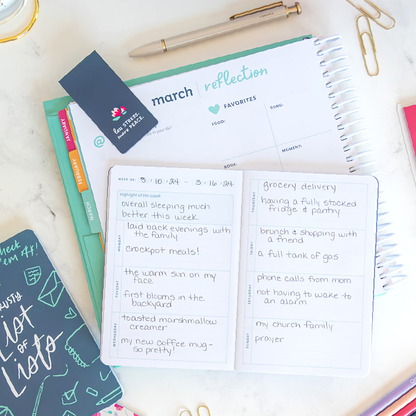 march | reflection
FAVORITES
FOOD:
SONG:
BOOK:
MOMENT:
less STRESS,
more PEACE.
JANUARY
WEEK OF: 3/10/24 - 3/16/24
highlight of the week
overall sleeping much
better this week
MONDAY
laid back evenings with
the family
crockpot meals!
TUESDAY
the warm sun on my
face
first blooms in the
backyard
WEDNESDAY
toasted marshmallow
creamer
my new coffee mug-
so pretty!
THURSDAY
grocery delivery
having a fully stocked
fridge & pantry
FRIDAY
brunch & shopping with
a friend
a full tank of gas
SATURDAY
phone calls from mom
not having to wake to
an alarm
SUNDAY
my church family
prayer
check
'em off!
List
of
Lists